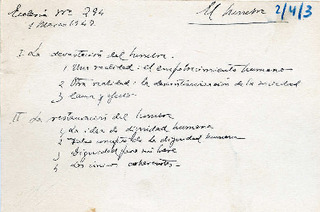 Ecclesia Nº 294
1 Marzo 1947
El hombre
2/4/3
I. La devastación del hombre
1 Una realidad: el empobrecimiento humano
2 Otra realidad: la deshumanización de la sociedad
3 Causa y efecto
II La restauración del hombre
1 La idea de dignidad humana
2 Falso concepto de la dignidad humana
3 Dignidad
4 Los